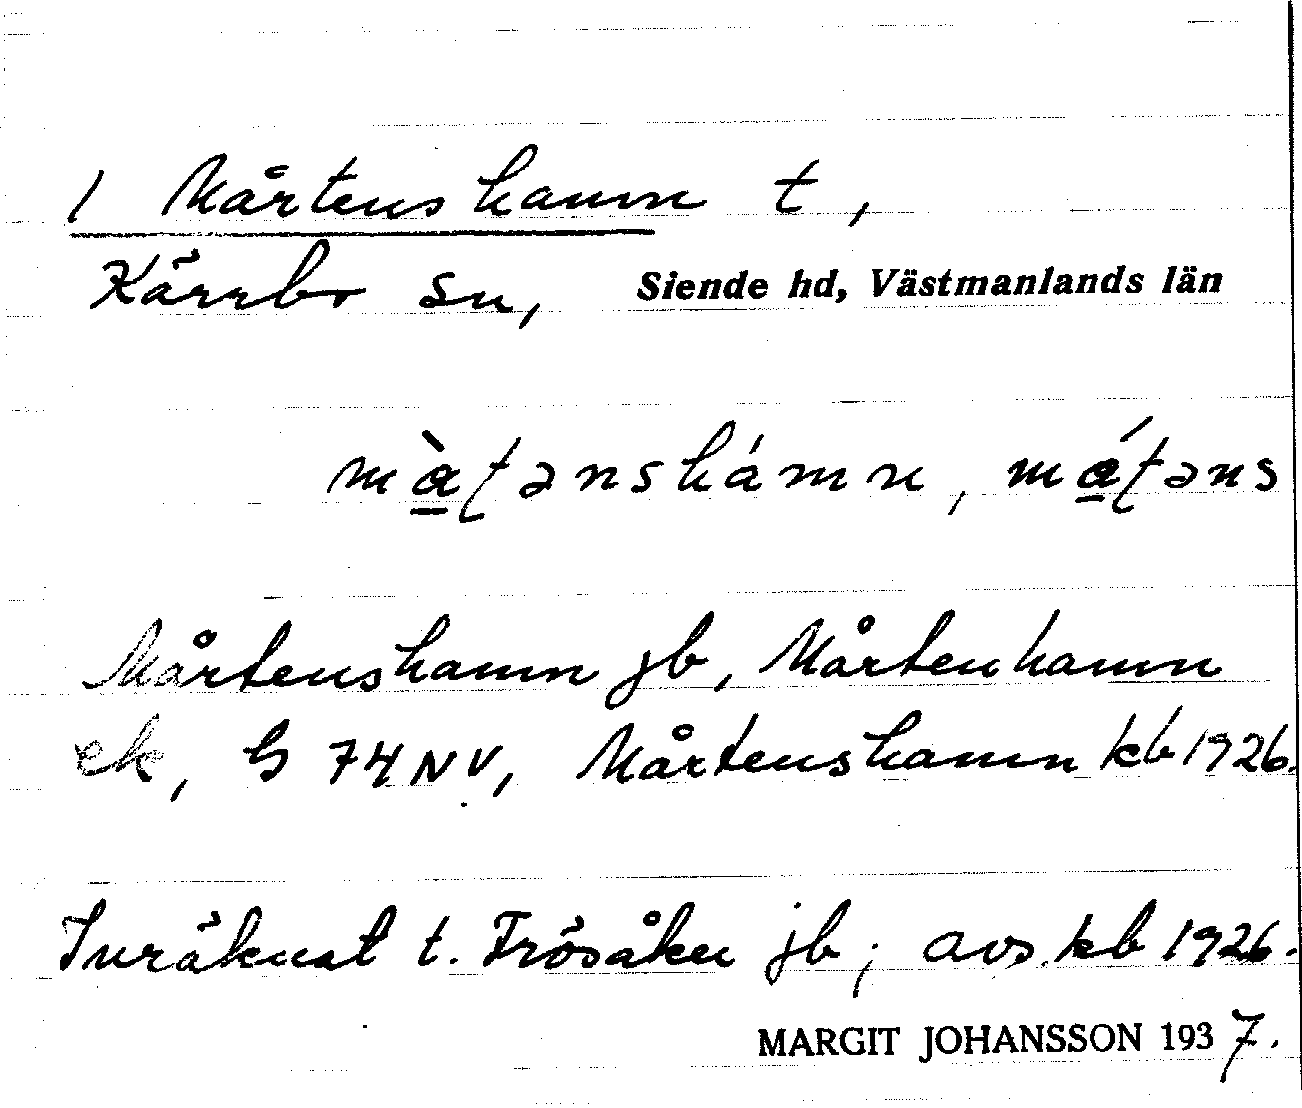 1 Mårtenshamn t,
Kärrbo sn, Siende hd, Västmanlands län
mà̱ʈənshámn, má̱ʈəns
Mårtenshamn jb, Mårtenhamn
ek, G 74 NV, Mårtenshamn kb 1926.
Inräknat t. Frösåker jb; avs. kb 1926.
MARGIT JOHANSSON 1937.